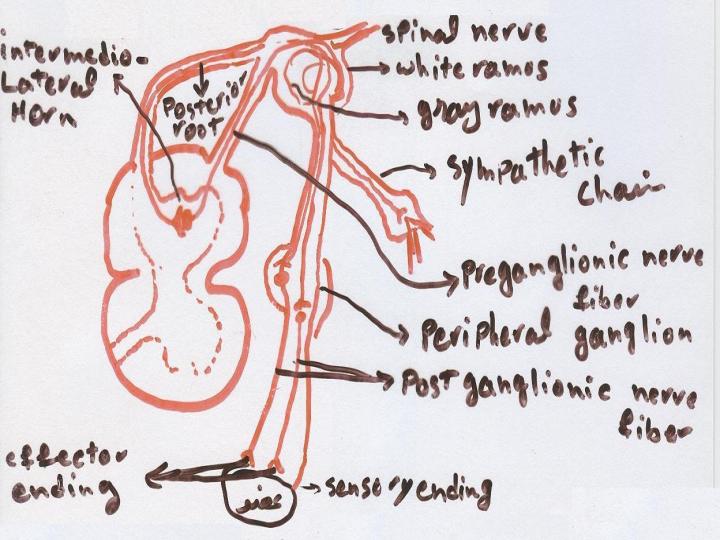 intermedio-
Lateral
Horn
Posterior
root
spinal nerve
white ramus
gray ramus
sympathetic
chain
preganglionic nerve
fiber
peripheral ganglion
Post ganglionic nerve
fiber
effector
ending
sensory ending